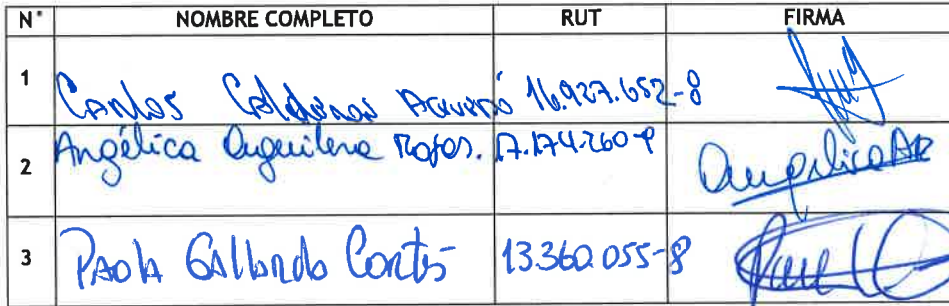 N° NOMBRE COMPLETO RUT FIRMA
1 Carlos Calderas Acevedo 16.927.652-8
2 Angélica Aguilera Rojas. 17.174.260-9 Angelica AR
3 Paola Gallardo Cortés 13.360.055-8